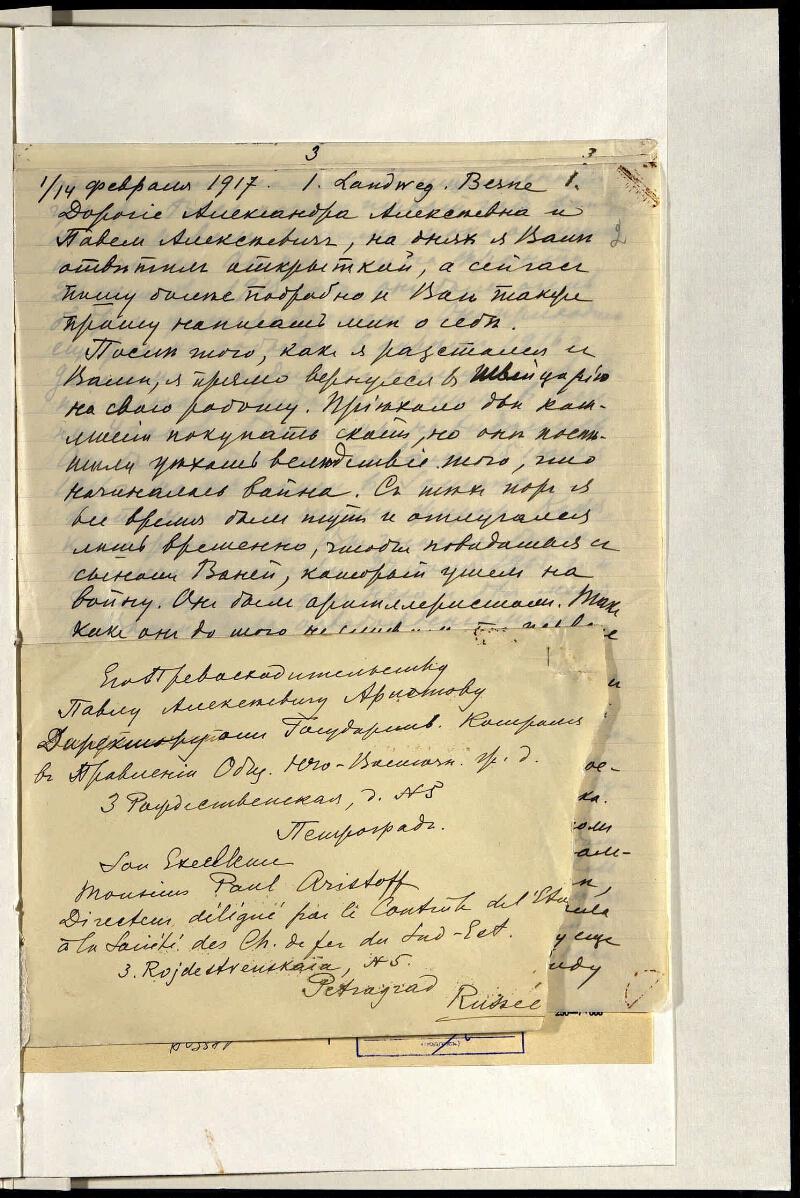 3 3
1/14 февраля 1917. 1. Landweg. Berne 1.
Дорогіе Александра Алексѣевна и 2
Павелъ Алексѣевичъ, на дняхъ я Вамъ
отвѣтилъ открыткой, а сейчасъ
пишу болѣе подробно и Васъ также
прошу написать мнѣ о себѣ.
Послѣ того, какъ я разстался съ
Вами, я прямо вернулся в Швейцарію
на свою работу. Пріѣхало двѣ ком-
миссіи покупать скотъ, но онѣ поспѣ-
шили уѣхать вслѣдствіе того, что
начиналась война. Съ тѣхъ поръ я
все время былъ тутъ и отлучался
лишь временно, чтобы повидаться съ
сыномъ Ваней, который ушелъ на
войну. Онъ былъ артиллеристомъ. Такъ
какъ онъ до того не
Его Превосходительству
Павлу Алексѣевичу Аристову
Директору отъ Государств. Контроля
въ Правленіи Общ. Юго-Восточн. ж. д.
3 Рождественская, д. №5
Петроградъ.
Son Excellence
Monsieur Paul Aristoff
Directeur, délégué par le Contrôle de l'Etat
à la Société des Ch. de fer du Sud-Est.
3. Rojdestvenskaïa, №5.
Petrograd
Russie
ое-
ха.
омъ
ом-
у еще
иду